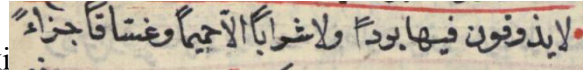 لا يذوقون فيها بردا ولا شرابا الا حميما وغساقا جزاء